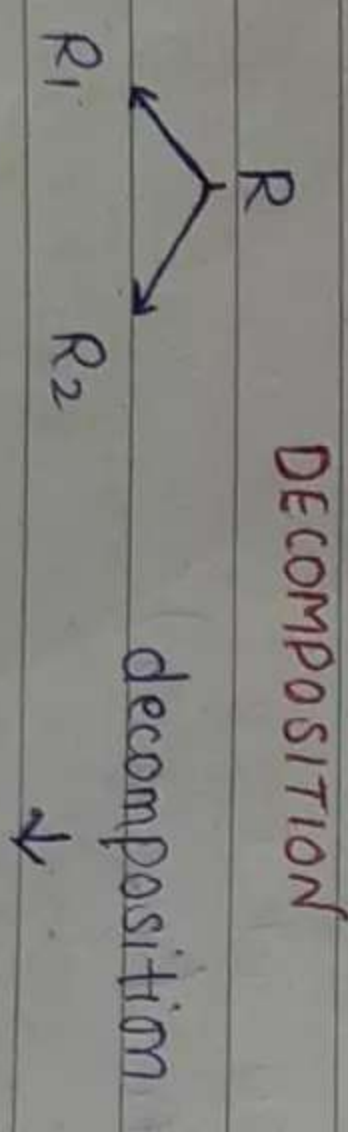 DECOMPOSITION
R
decomposition
R1 R2